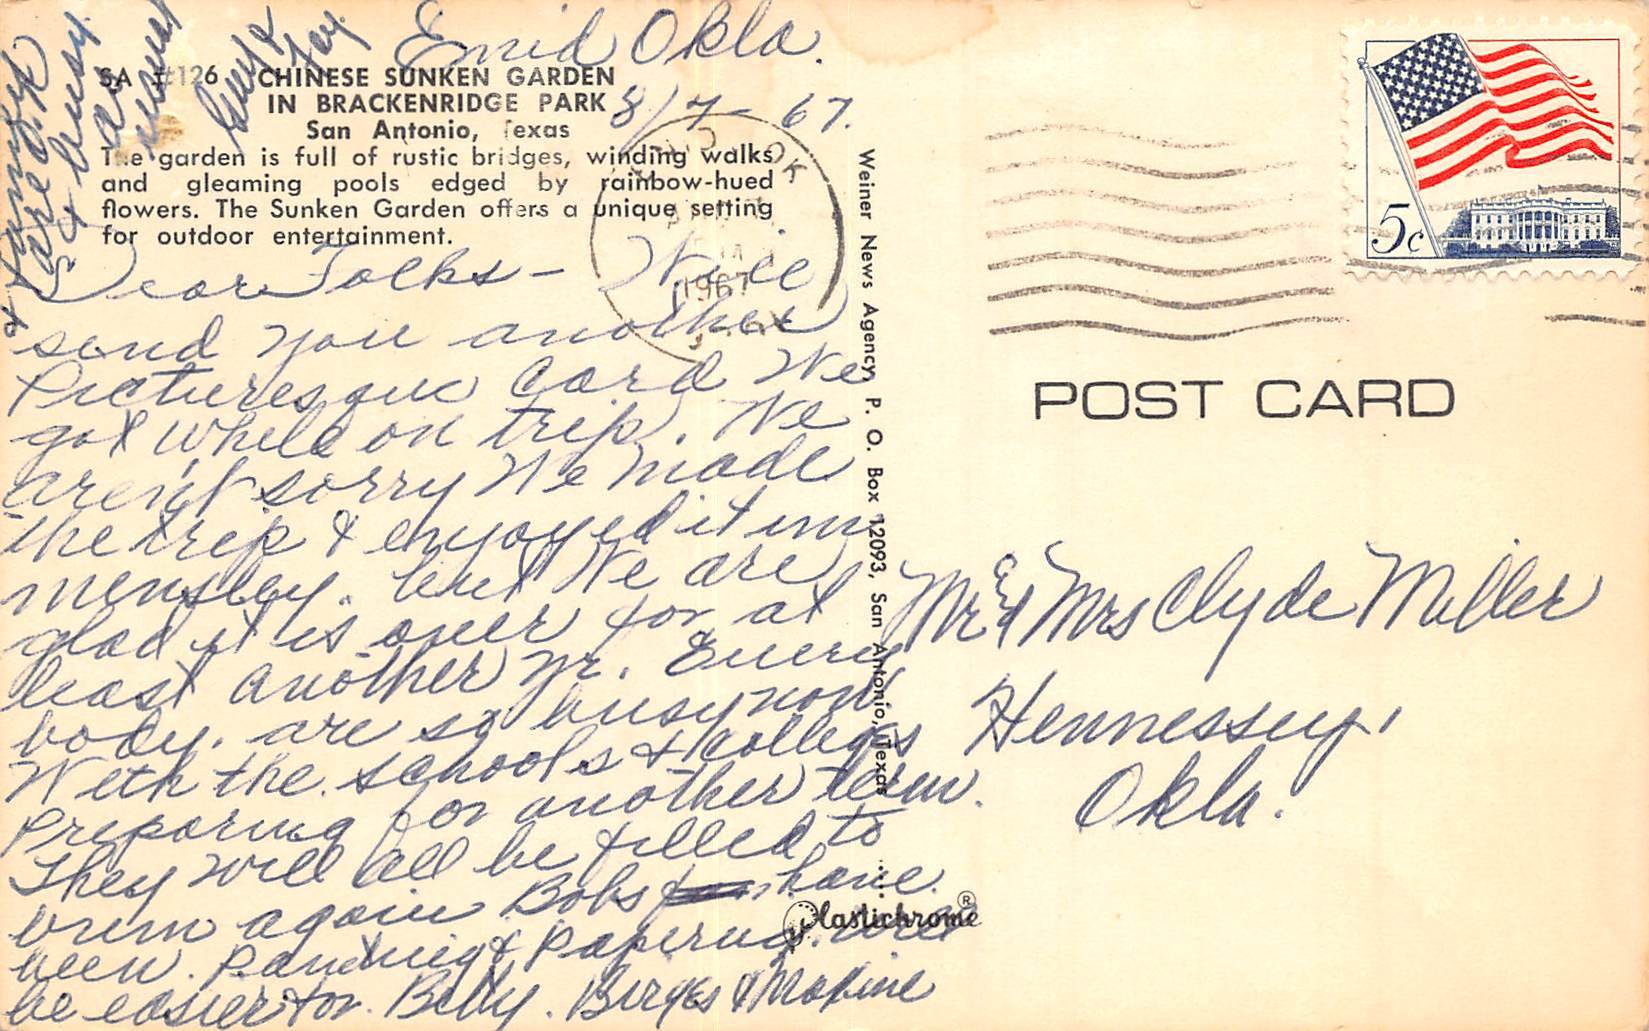 Enid Okla.
8/7-67.
SA #126 CHINESE SUNKEN GARDEN
IN BRACKENRIDGE PARK
San Antonio, Texas
The garden is full of rustic bridges, winding walks
and gleaming pools edged by rainbow-hued
flowers. The Sunken Garden offers a unique setting
for outdoor entertainment.
1967
Dear Folks - Will
send you another
Picturesque Card We
got while on trip. We
aren't sorry We made
the trip & enjoyed it im
mensley. but We are
glad it is over for at
least another yr. Every
body. are so busy now
With the schools & Colleges
preparing for another term.
They will all be filled to
brim again Bobs have
been. Painting & papering. will
be easier for. Betty. Birges & Maxine
& family
are O.K.
& busy
as
usual
Weiner News Agency, P. O. Box 12093, San Antonio, Texas
Plastichrome ®
5c
POST CARD
Mr & Mrs Clyde Miller
Hennessey,
Okla.